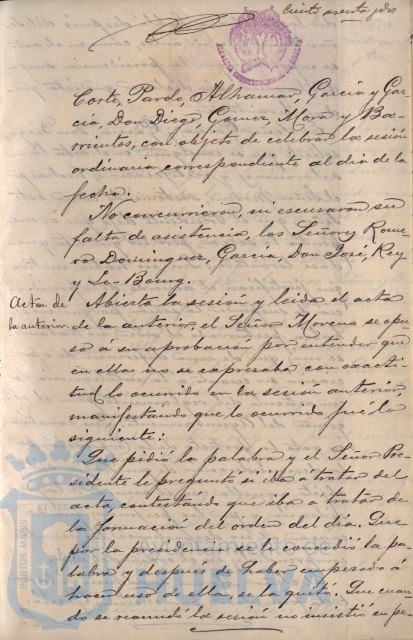 Ciento sesenta y dos
Corte, Pardo, Alhamar, García y Gar-
cía, Don Diego Gomez, Mora y Ba-
rrientos, con objeto de celebrar la sesión
ordinaria correspondiente al día de la
fecha.
No concurrieron, ni escusaron su
falta de asistencia, los Señores Rome-
ro Dominguez, García, Don José, Rey
y Le-Bourg.
Acta de
la anterior.
Abierta la sesión y leida el acta
de la anterior, el Señor Moreno se opu-
so á su aprobación por entender que
en ella no se expresaba con exacti-
tud lo ocurrido en la sesión anterior,
manifestando que lo ocurrido fué lo
siguiente:
Que pidió la palabra y el Señor Pre-
sidente le preguntó si iba á tratar del
acta, contestando que iba á tratar de
la formación del orden del día. Que
por la presidencia se le concedió la pa-
labra y después de haber empezado á
hacer uso de ella, se la quitó. Que cuan-
do se reanudó la sesión no insistió en pe-
PORTUS MARIS
ET TERR
Ayuntamiento de
HUELVA